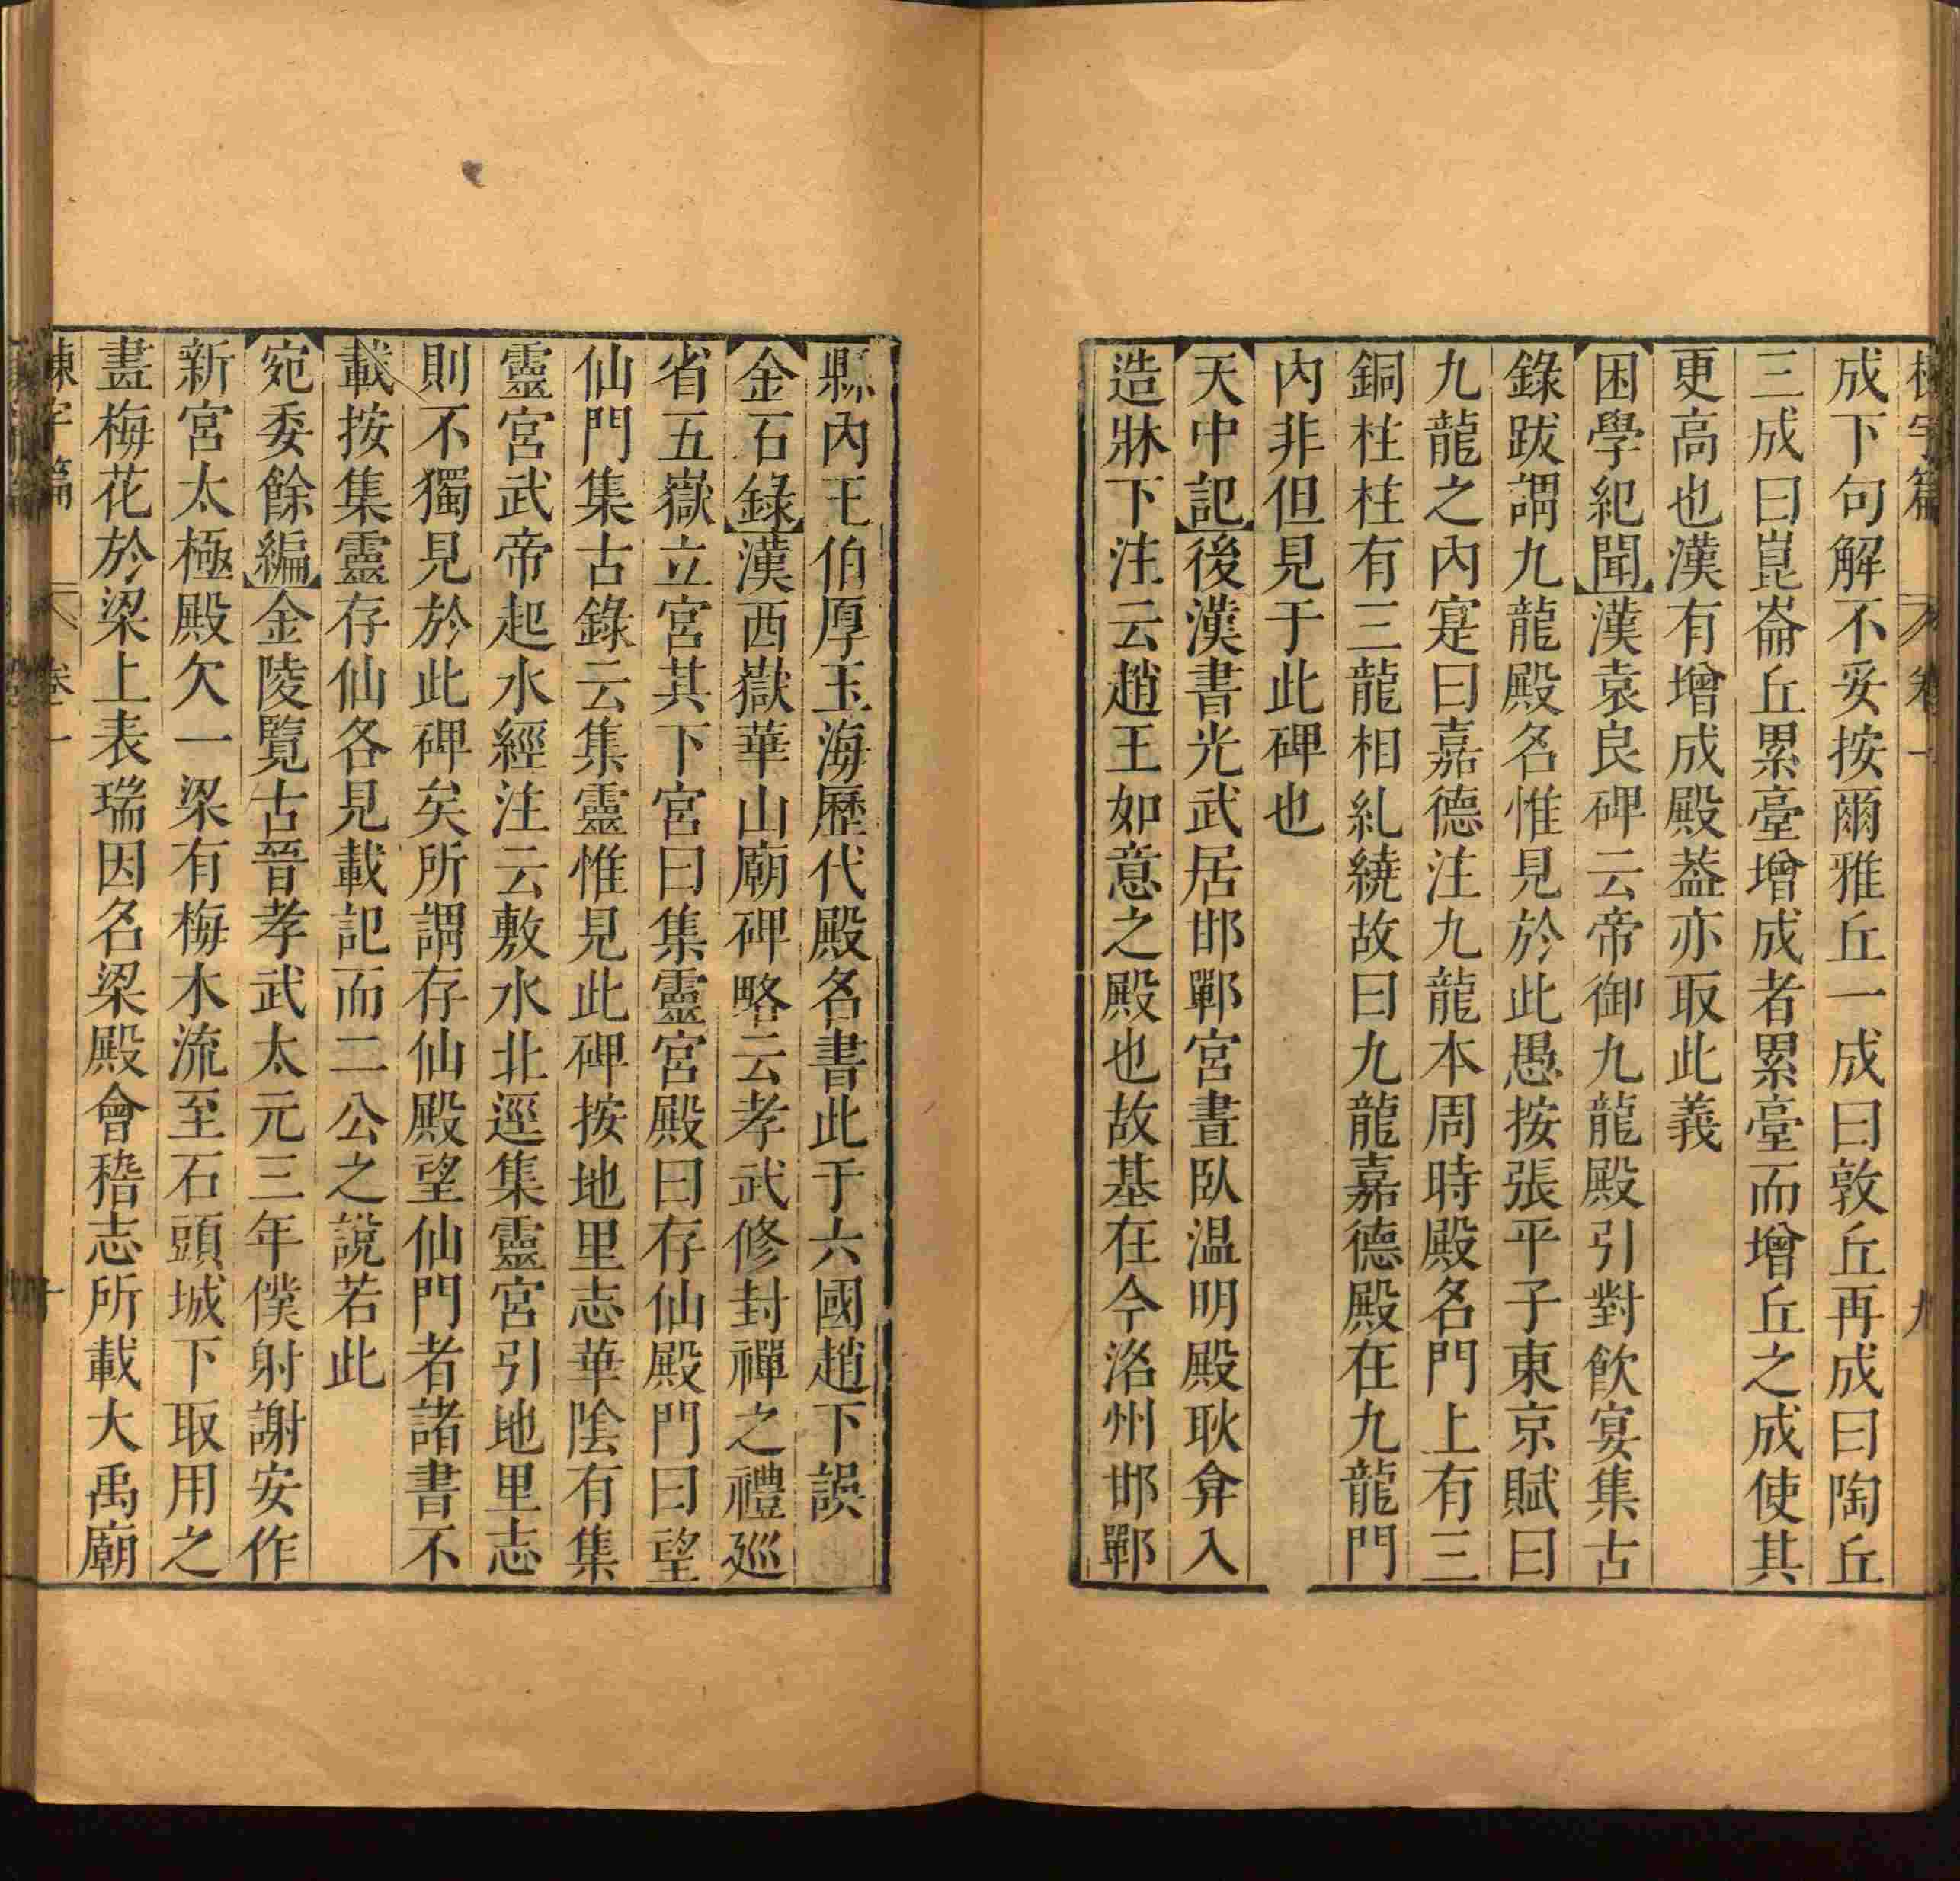 成下句解不妥按爾雅丘一成曰敦丘再成曰陶丘
三成曰崑崙丘累臺增成者累臺而增丘之成使其
更高也漢有增成殿葢亦取此義
困學紀聞漢袁良碑云帝御九龍殿引對飲宴集古
錄跋謂九龍殿名惟見於此愚按張平子東京賦曰
九龍之內寔曰嘉德注九龍本周時殿名門上有三
銅柱柱有三龍相糺繞故曰九龍嘉德殿在九龍門
內非但見于此碑也
天中記後漢書光武居邯鄲宮晝臥温明殿耿弇入
造牀下注云趙王如意之殿也故基在今洺州邯鄲
縣內王伯厚玉海歷代殿名書此于六國趙下誤
金石錄漢西嶽華山廟碑略云孝武修封禪之禮巡
省五嶽立宮其下宮曰集靈宮殿曰存仙殿門曰望
仙門集古錄云集靈惟見此碑按地里志華陰有集
靈宮武帝起水經注云敷水北逕集靈宮引地里志
則不獨見於此碑矣所謂存仙殿望仙門者諸書不
載按集靈存仙各見載記而二公之說若此
宛委餘編金陵覽古晉孝武太元三年僕射謝安作
新宮太極殿欠一梁有梅木流至石頭城下取用之
畫梅花於梁上表瑞因名梁殿會稽志所載大禹廟